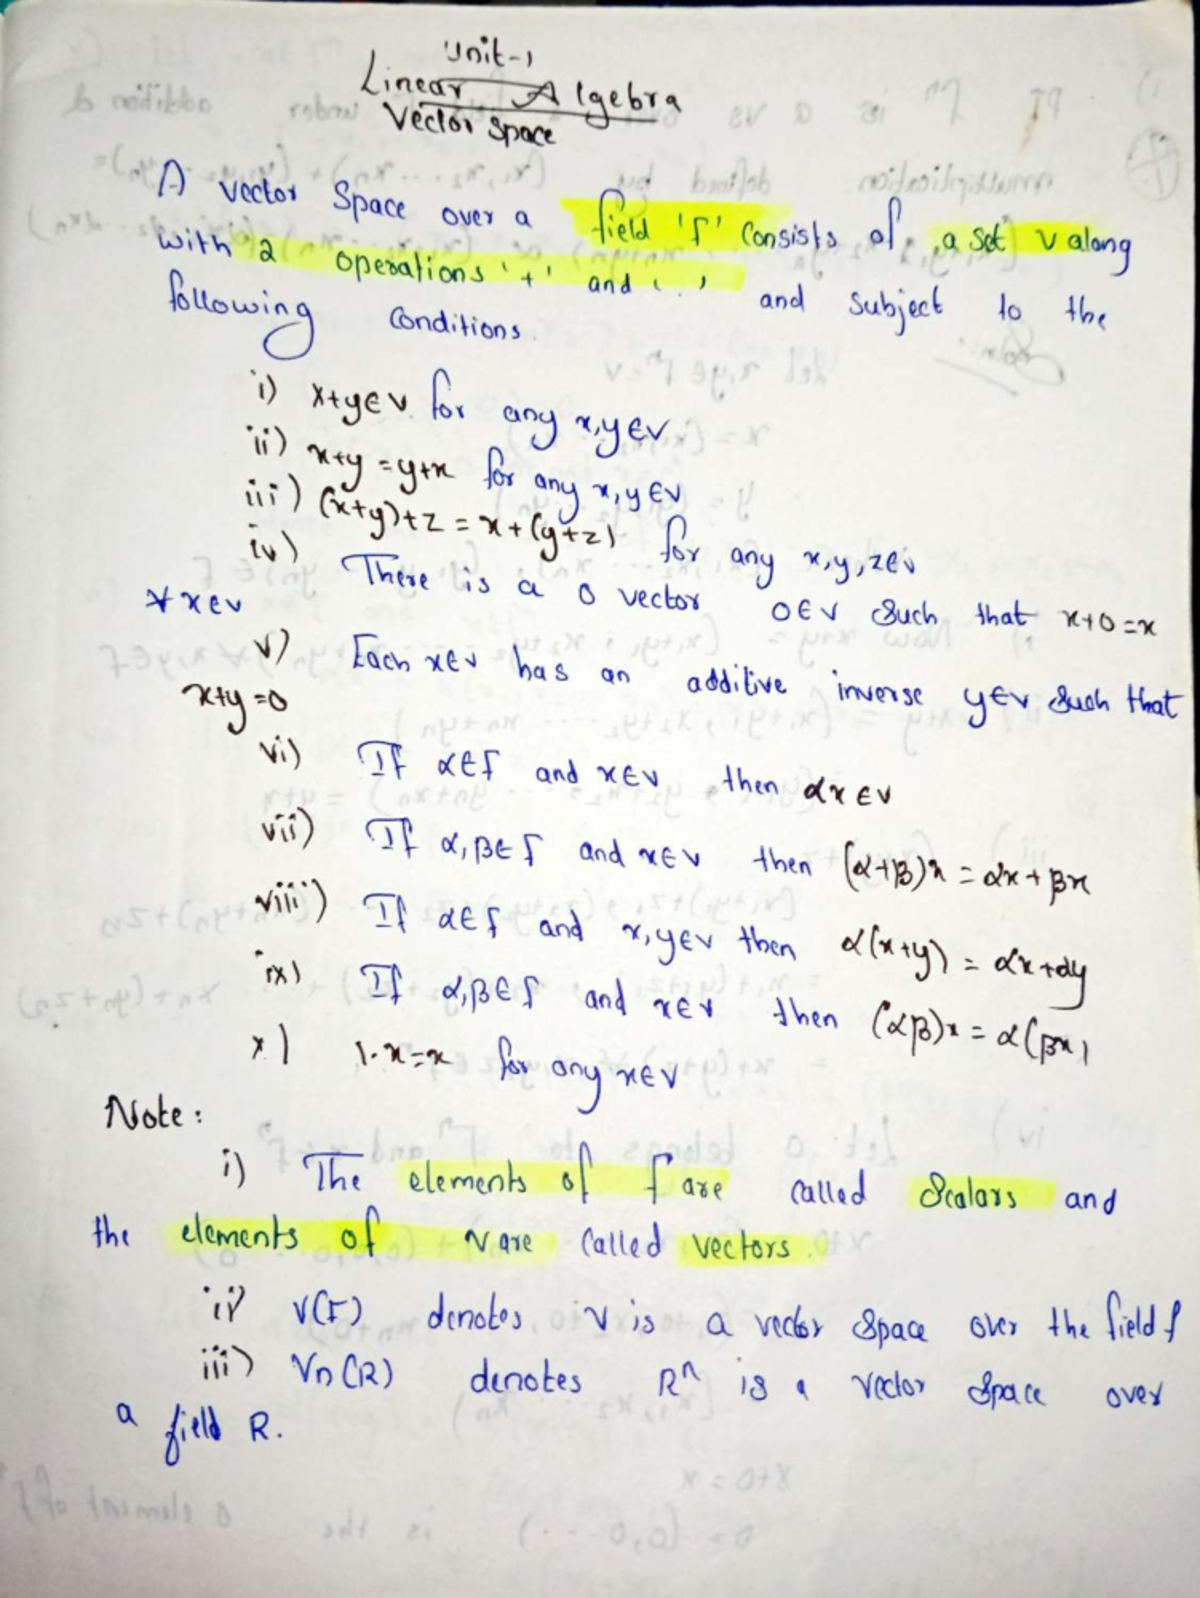 Unit-1
Linear Algebra
Vector space
A vector Space over a field 'f' Consists of a set V along
with 2 operations '+' and '.' and subject to the
following Conditions.
i) x+y∈v for any x,y∈v
ii) x+y=y+x for any x,y∈v
iii) (x+y)+z=x+(y+z) for any x,y,z∈v
iv) There is a 0 vector 0∈v Such that x+0=x
∀x∈v
v) Each x∈v has an additive inverse y∈v Such that
x+y=0
vi) If α∈f and x∈v then αx∈v
vii) If α,β∈f and x∈v then (α+β)x=αx+βx
viii) If α∈f and x,y∈v then α(x+y)=αx+αy
ix) If α,β∈f and x∈v then (αβ)x=α(βx)
x) 1.x=x for any x∈v
Note:
i) The elements of f are called Scalars and
the elements of v are called vectors.
ii) V(F) denotes V is a vector Space over the field f
iii) Vn(R) denotes Rⁿ is a vector Space over
a field R.